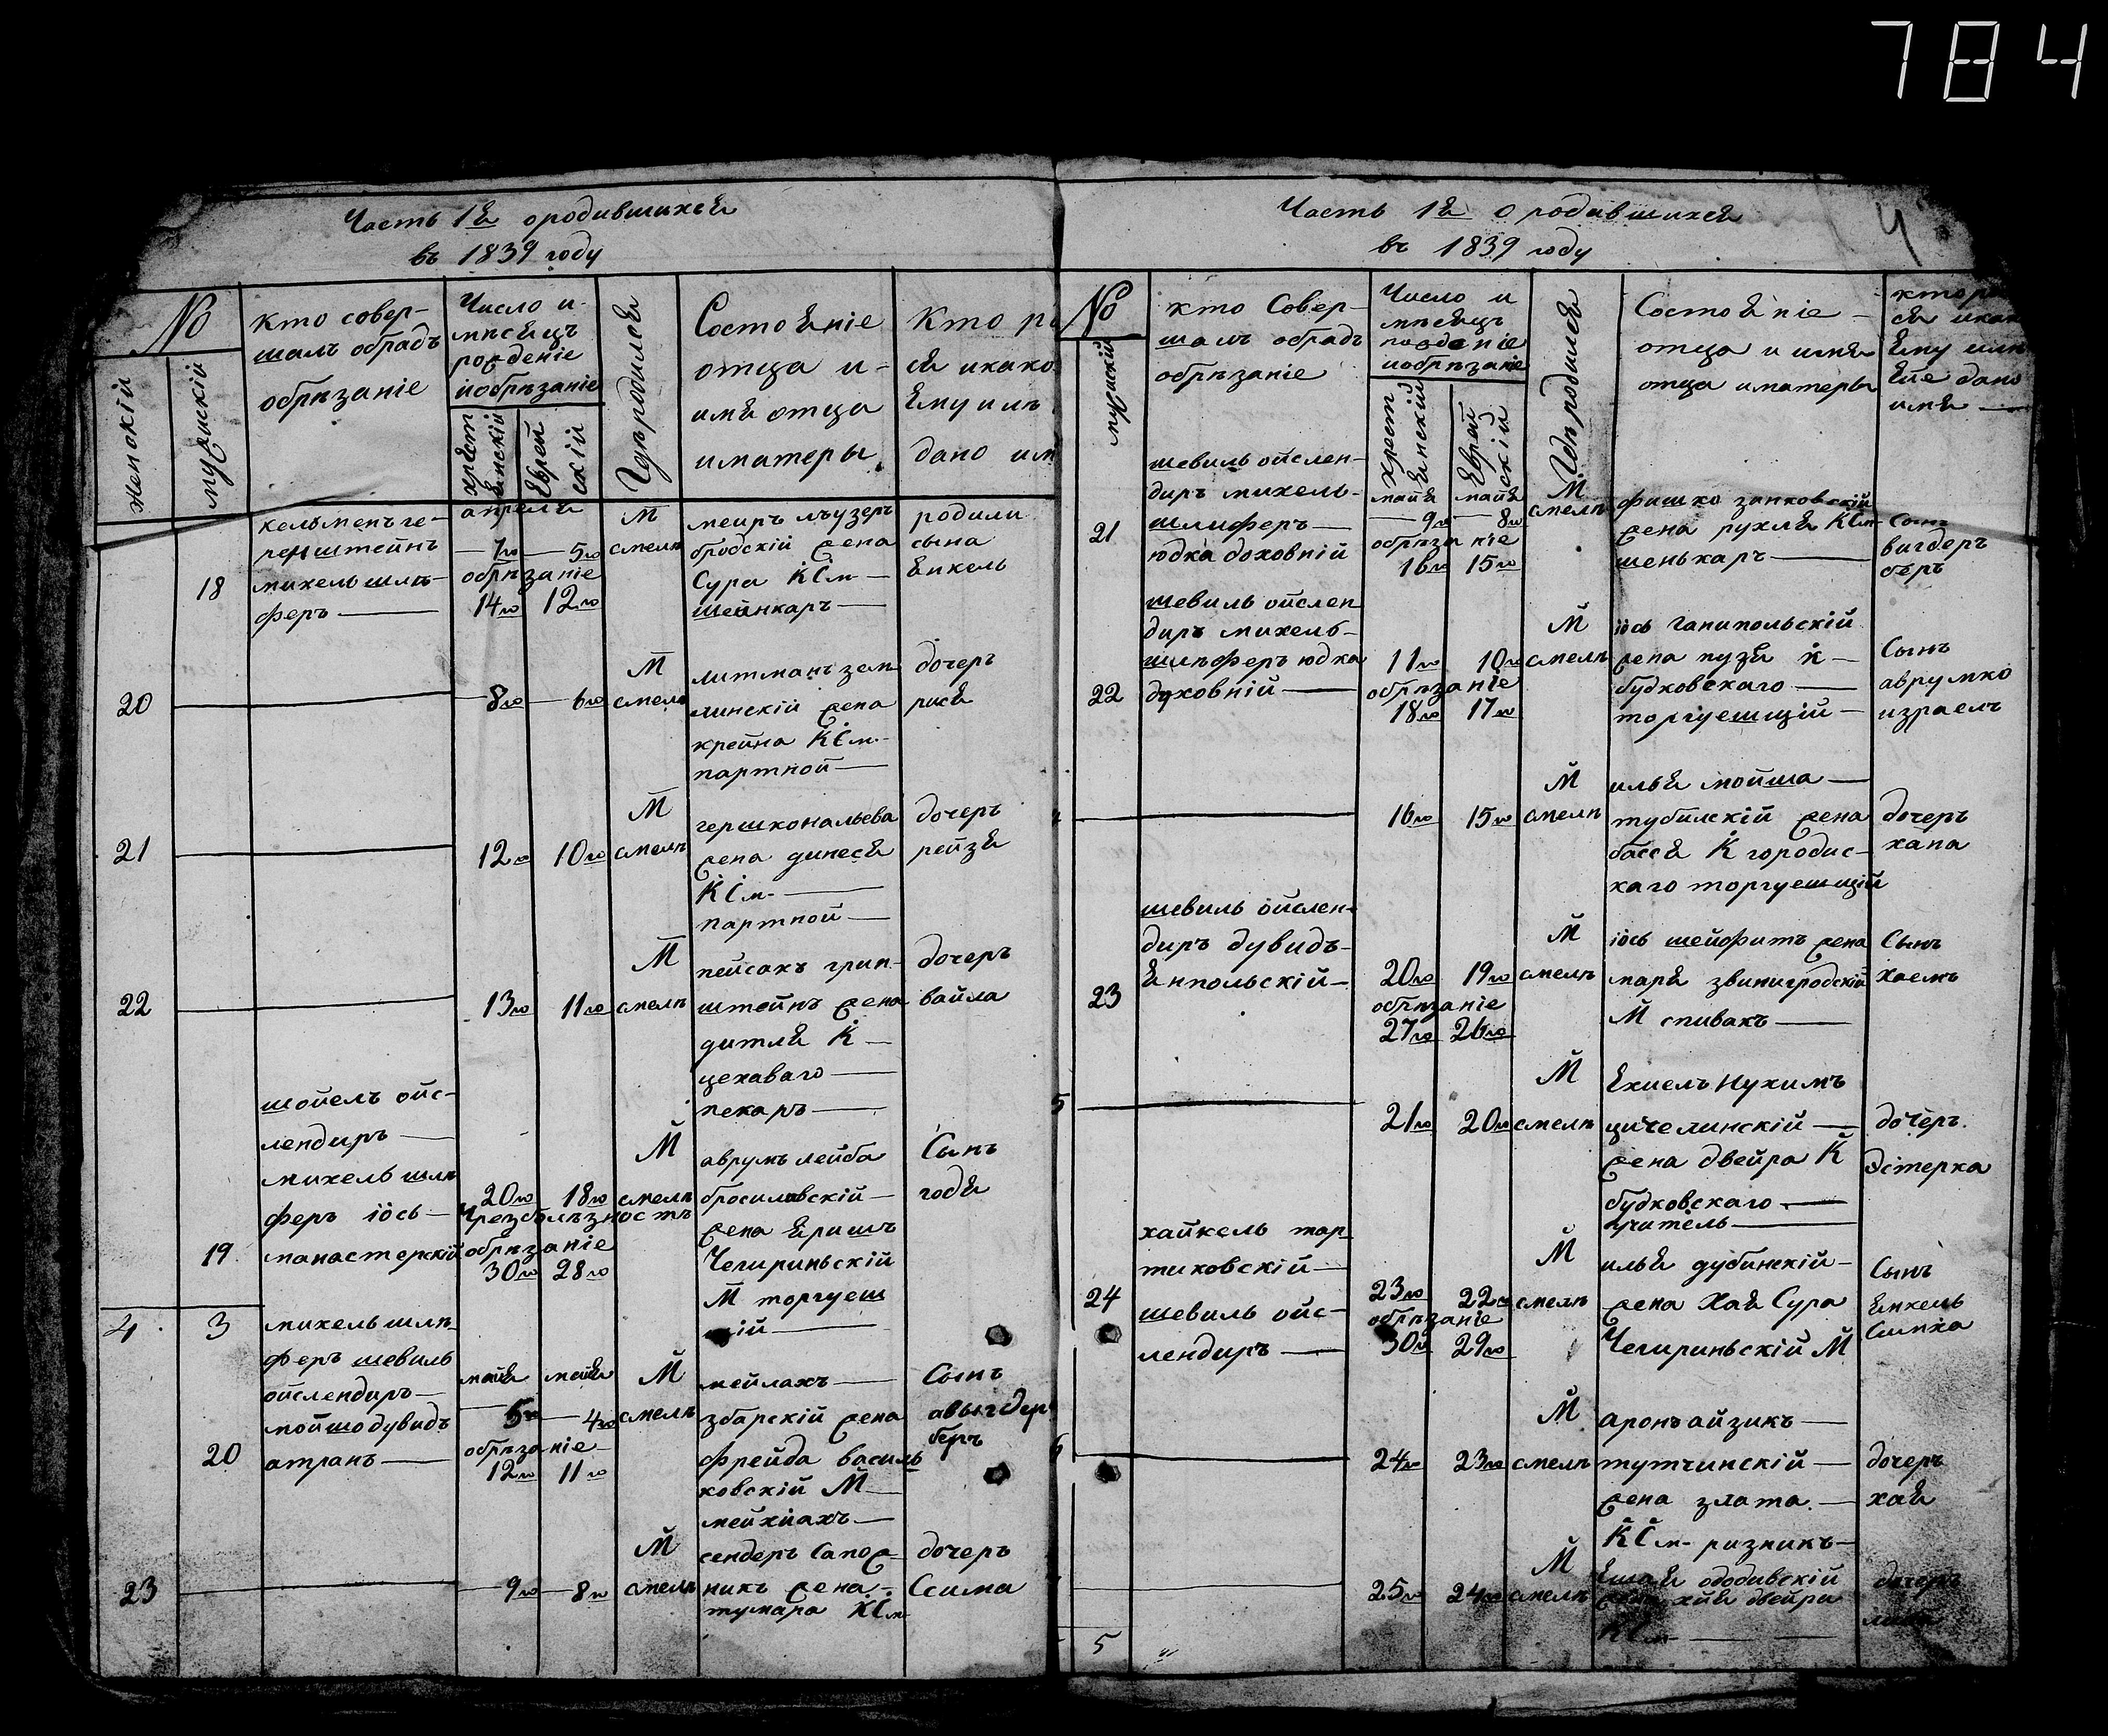 784
Часть 1я ородившихся
въ 1839 году
№
Женскій
мужскій
кто совер-
шалъ обрадъ
обрѣзаніе
Число и
мѣсяцъ
рожденіе
иобрѣзаніе
христ
янскій
Еврей
скій
Гдѣ родился
Состояніе
отца и-
имя отца
иматеры
кто ро
ся икако
Ему илъ
дано им
апреля
18
кельменъ ге-
ренштейнъ
михель шлѣ-
феръ
7го 5го
обрѣзаніе
14го 12го
М
смелѣ
меиръ лъузеръ
бродскій жена
Сура КСм
шейнкаръ
родили
сына
Янкель
20
8го 6го
М
смелѣ
литманъ зем
линскій жена
крейна КСм.
партной
дочеръ
рися
21
12го 10го
М
смелѣ
гершкональева
жена динеся
КСм.
партной
дочеръ
рейзя
22
13го 11го
М
смелѣ
пейсахъ грин-
штейнъ жена
дитля К
цехаваго
пекаръ
дочеръ
вайла
19
шойелъ ойс-
лендиръ
михель шлѣ
феръ іось
манастерскій
20го 18го
Чрезболѣзность
обрѣзаніе
30го 28го
М
смелѣ
аврумъ лейба
бросиловскій
жена Яришъ
Чегириньскій
М торгуеш
щій
Сынъ
годя
4 3
20
михель шлѣ
феръ шевиль
ойслендиръ
мойшодувидъ
атранъ
майя майя
5го 4го
обрѣзаніе
12го 11го
М
смелѣ
мейлахъ
збарскій жена
фрейда василь
ковскій М
мейхиахъ
Сынъ
авыгдеръ
беръ
23
9го 8го
М
смелѣ
сендеръ Сапож-
никъ жена
тумара КСм
дочеръ
Ссима
Часть 1я о родившихся
въ 1839 году
4
№
мужскій
кто Совер-
шалъ обрадъ
обрѣзаніе
Число и
мѣсяцъ
рождѣніе
иобрѣзаніе
христ
янскій
Еврей
скій
Гдѣ родился
Состояніе
отца и имя
отца иматеры
кто ро
ся икак
Ему или
Ейе дано
имя
21
шевиль ойслен-
диръ михель-
шлиферъ
юдка духовній
майя майя
9го 8го
обрѣзаніе
16го 15го
М
смелѣ
фишко занковскій
жена рухля КСм
шенькаръ
Сынъ
вигдеръ
беръ
22
шевиль ойслен
диръ михель-
шлѣферъ юдка
духовній
11го 10го
обрѣзаніе
18го 17го
М
смелѣ
іось Ганипольскій
жена пузя к
будковскаго
торгуешщій
Сынъ
аврумко
израелъ
16го 15го
М
смелѣ
илья мойша
тубилскій жена
басся К городис-
каго торгуешщій
дочеръ
хана
23
шевиль ойслен-
диръ дувидъ
Янпольскій
20го 19го
обрѣзаніе
27го 26го
М
смелѣ
іось шейфитъ жена
маря звинигродскій
М спивакъ
Сынъ
хаемъ
5
21го 20го
М
смелѣ
Яхиель Нухимъ
цичелинскій
жена двейра К
будковскаго
учитель
дочеръ
Эстерка
24
хайкель тар
тиковскій
шевиль ойс-
лендиръ
23го 22го
обрѣзаніе
30го 29го
М
смелѣ
илья дубинскій
жена Хая Сура
Чегириньскій М
Сынъ
Янкель
Симха
6
24го 23го
М
смелѣ
аронъ айзикъ
тутчинскій
жена злата
КСм ризникъ
дочеръ
хая
25го 24го
М
смелѣ
Ешая ододивскій
жена хия двейра
КСм
дочеръ
5